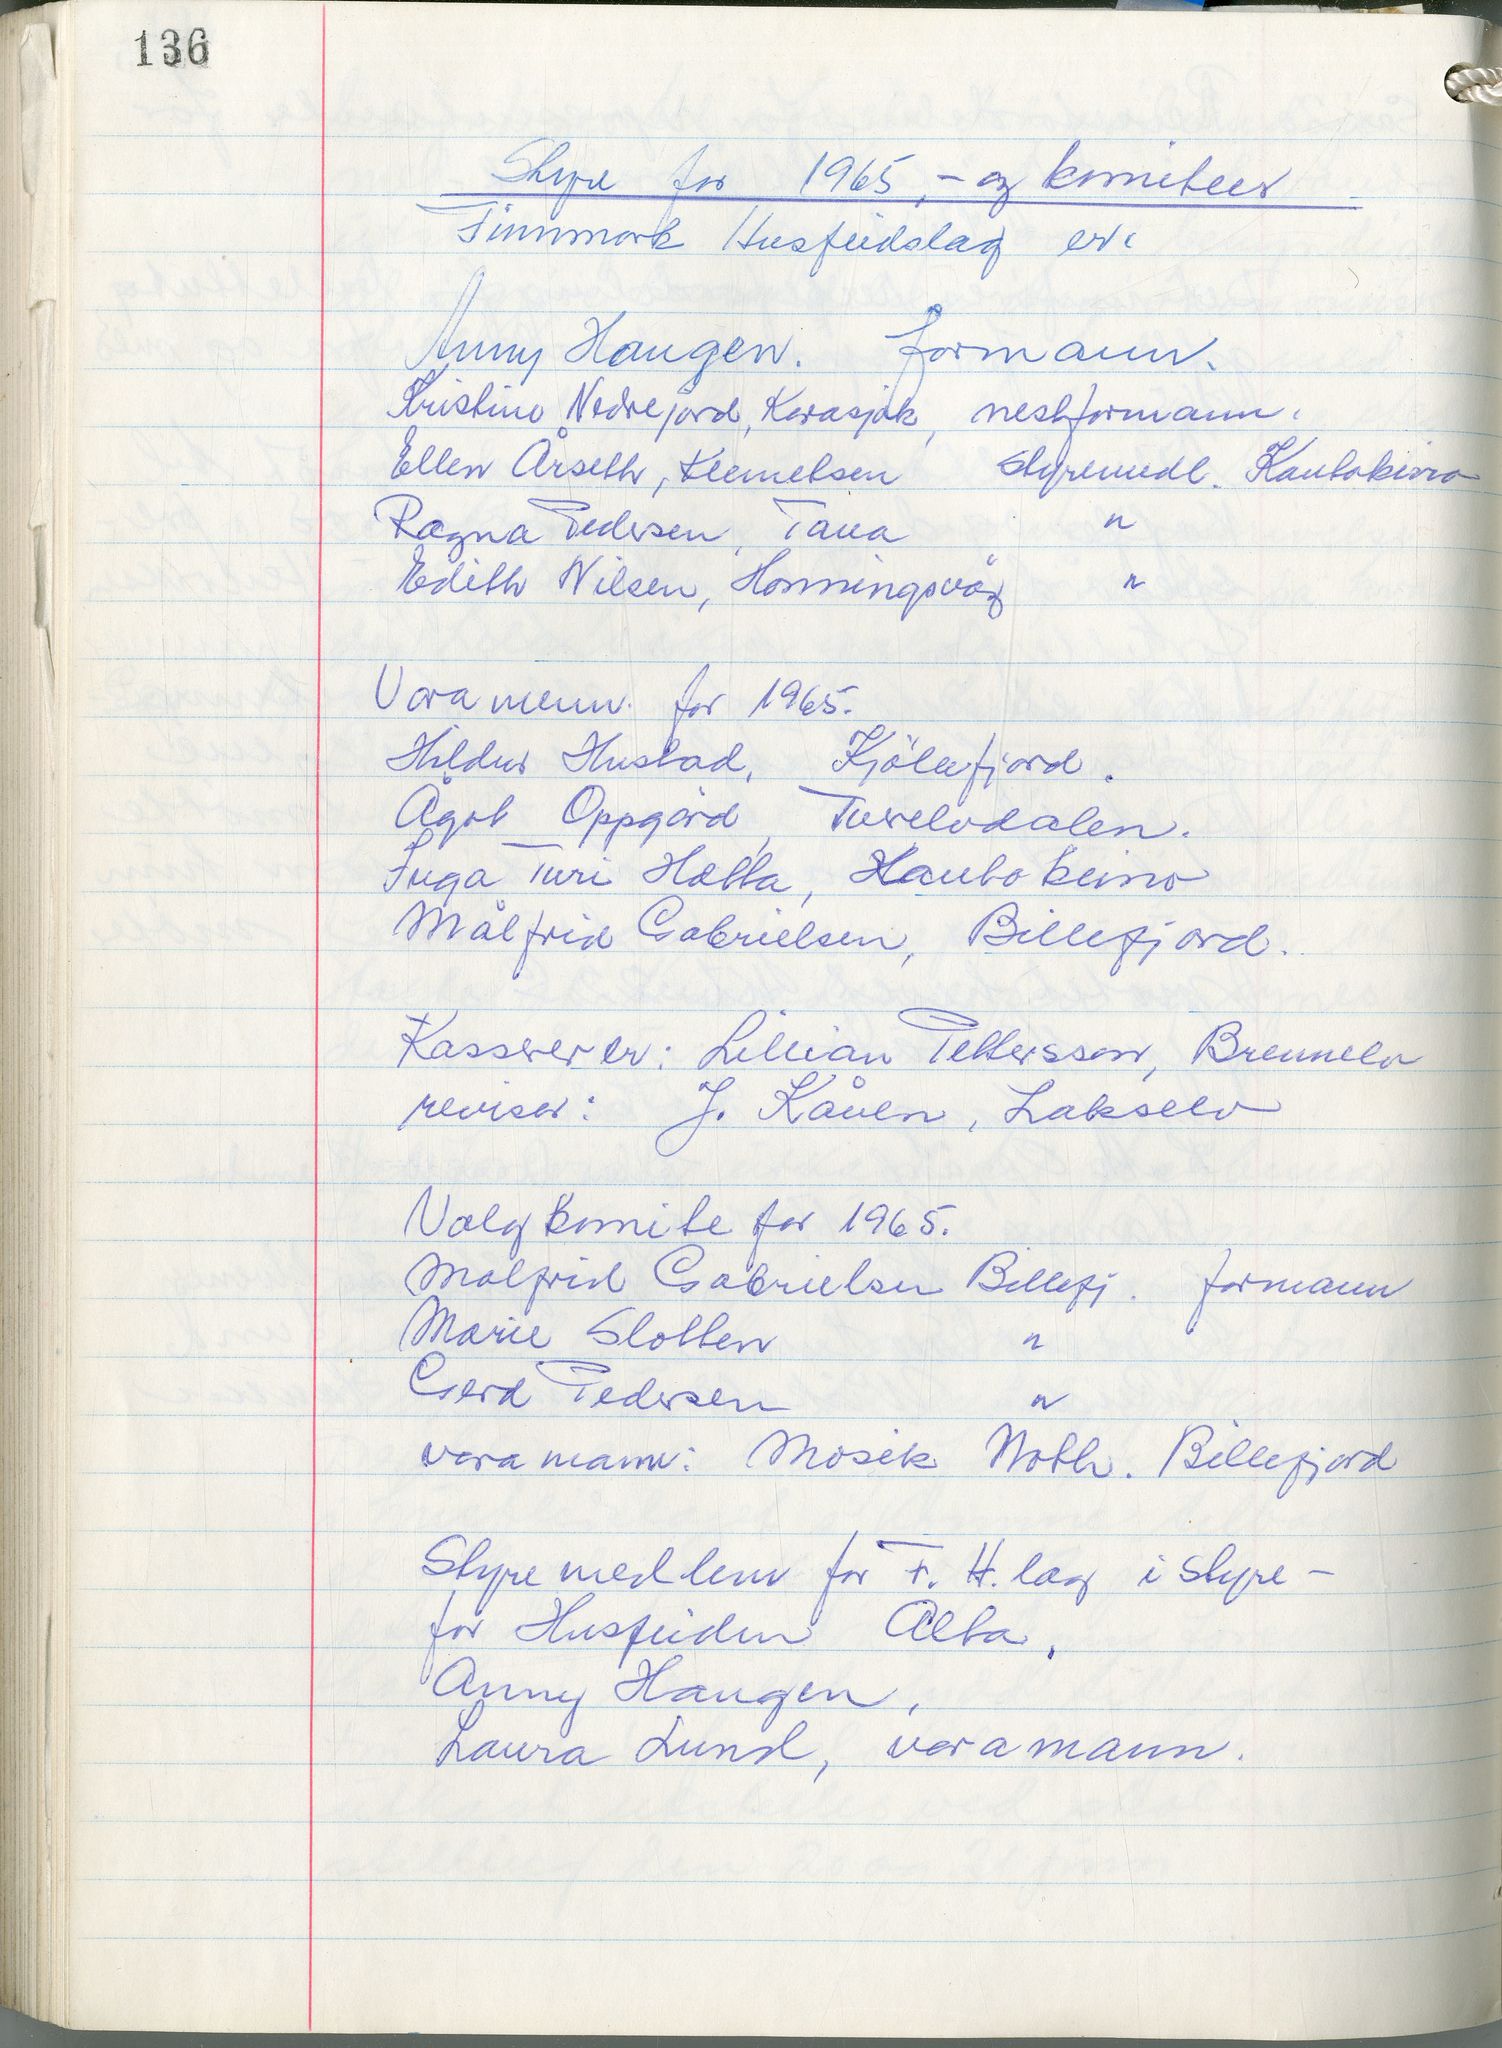 136
Styre for 1965,- og komiteer
Finnmark Husflidslag er:
Anny Haugen. formann.
Kristine Nedrejord, Karasjok, nestformann.
Ellen Årseth, Klemetsen styremedl. Kautokeino
Ragna Pedersen, Tana "
Edith Nilsen, Honningsvåg "
Varamenn. for 1965.
Hildur Hustad, Kjöllefjord.
Ågot Oppgård, Tverelvdalen.
Inga Turi Hætta, Kautokeino
Målfrid Gabrielsen, Billefjord.
Kasserer er: Lillian Pettersson, Brennelv
revisor: J. Kåven, Lakselv
Valgkomite for 1965.
Målfrid Gabrielsen Billefj. formann
Marie Slotten "
Gerd Pedersen "
varamann: Mosek Billefjord
Styremedlem for F. H. lag i styre -
for Husfliden Alta.
Anny Haugen,
Laura Lund, varamann.